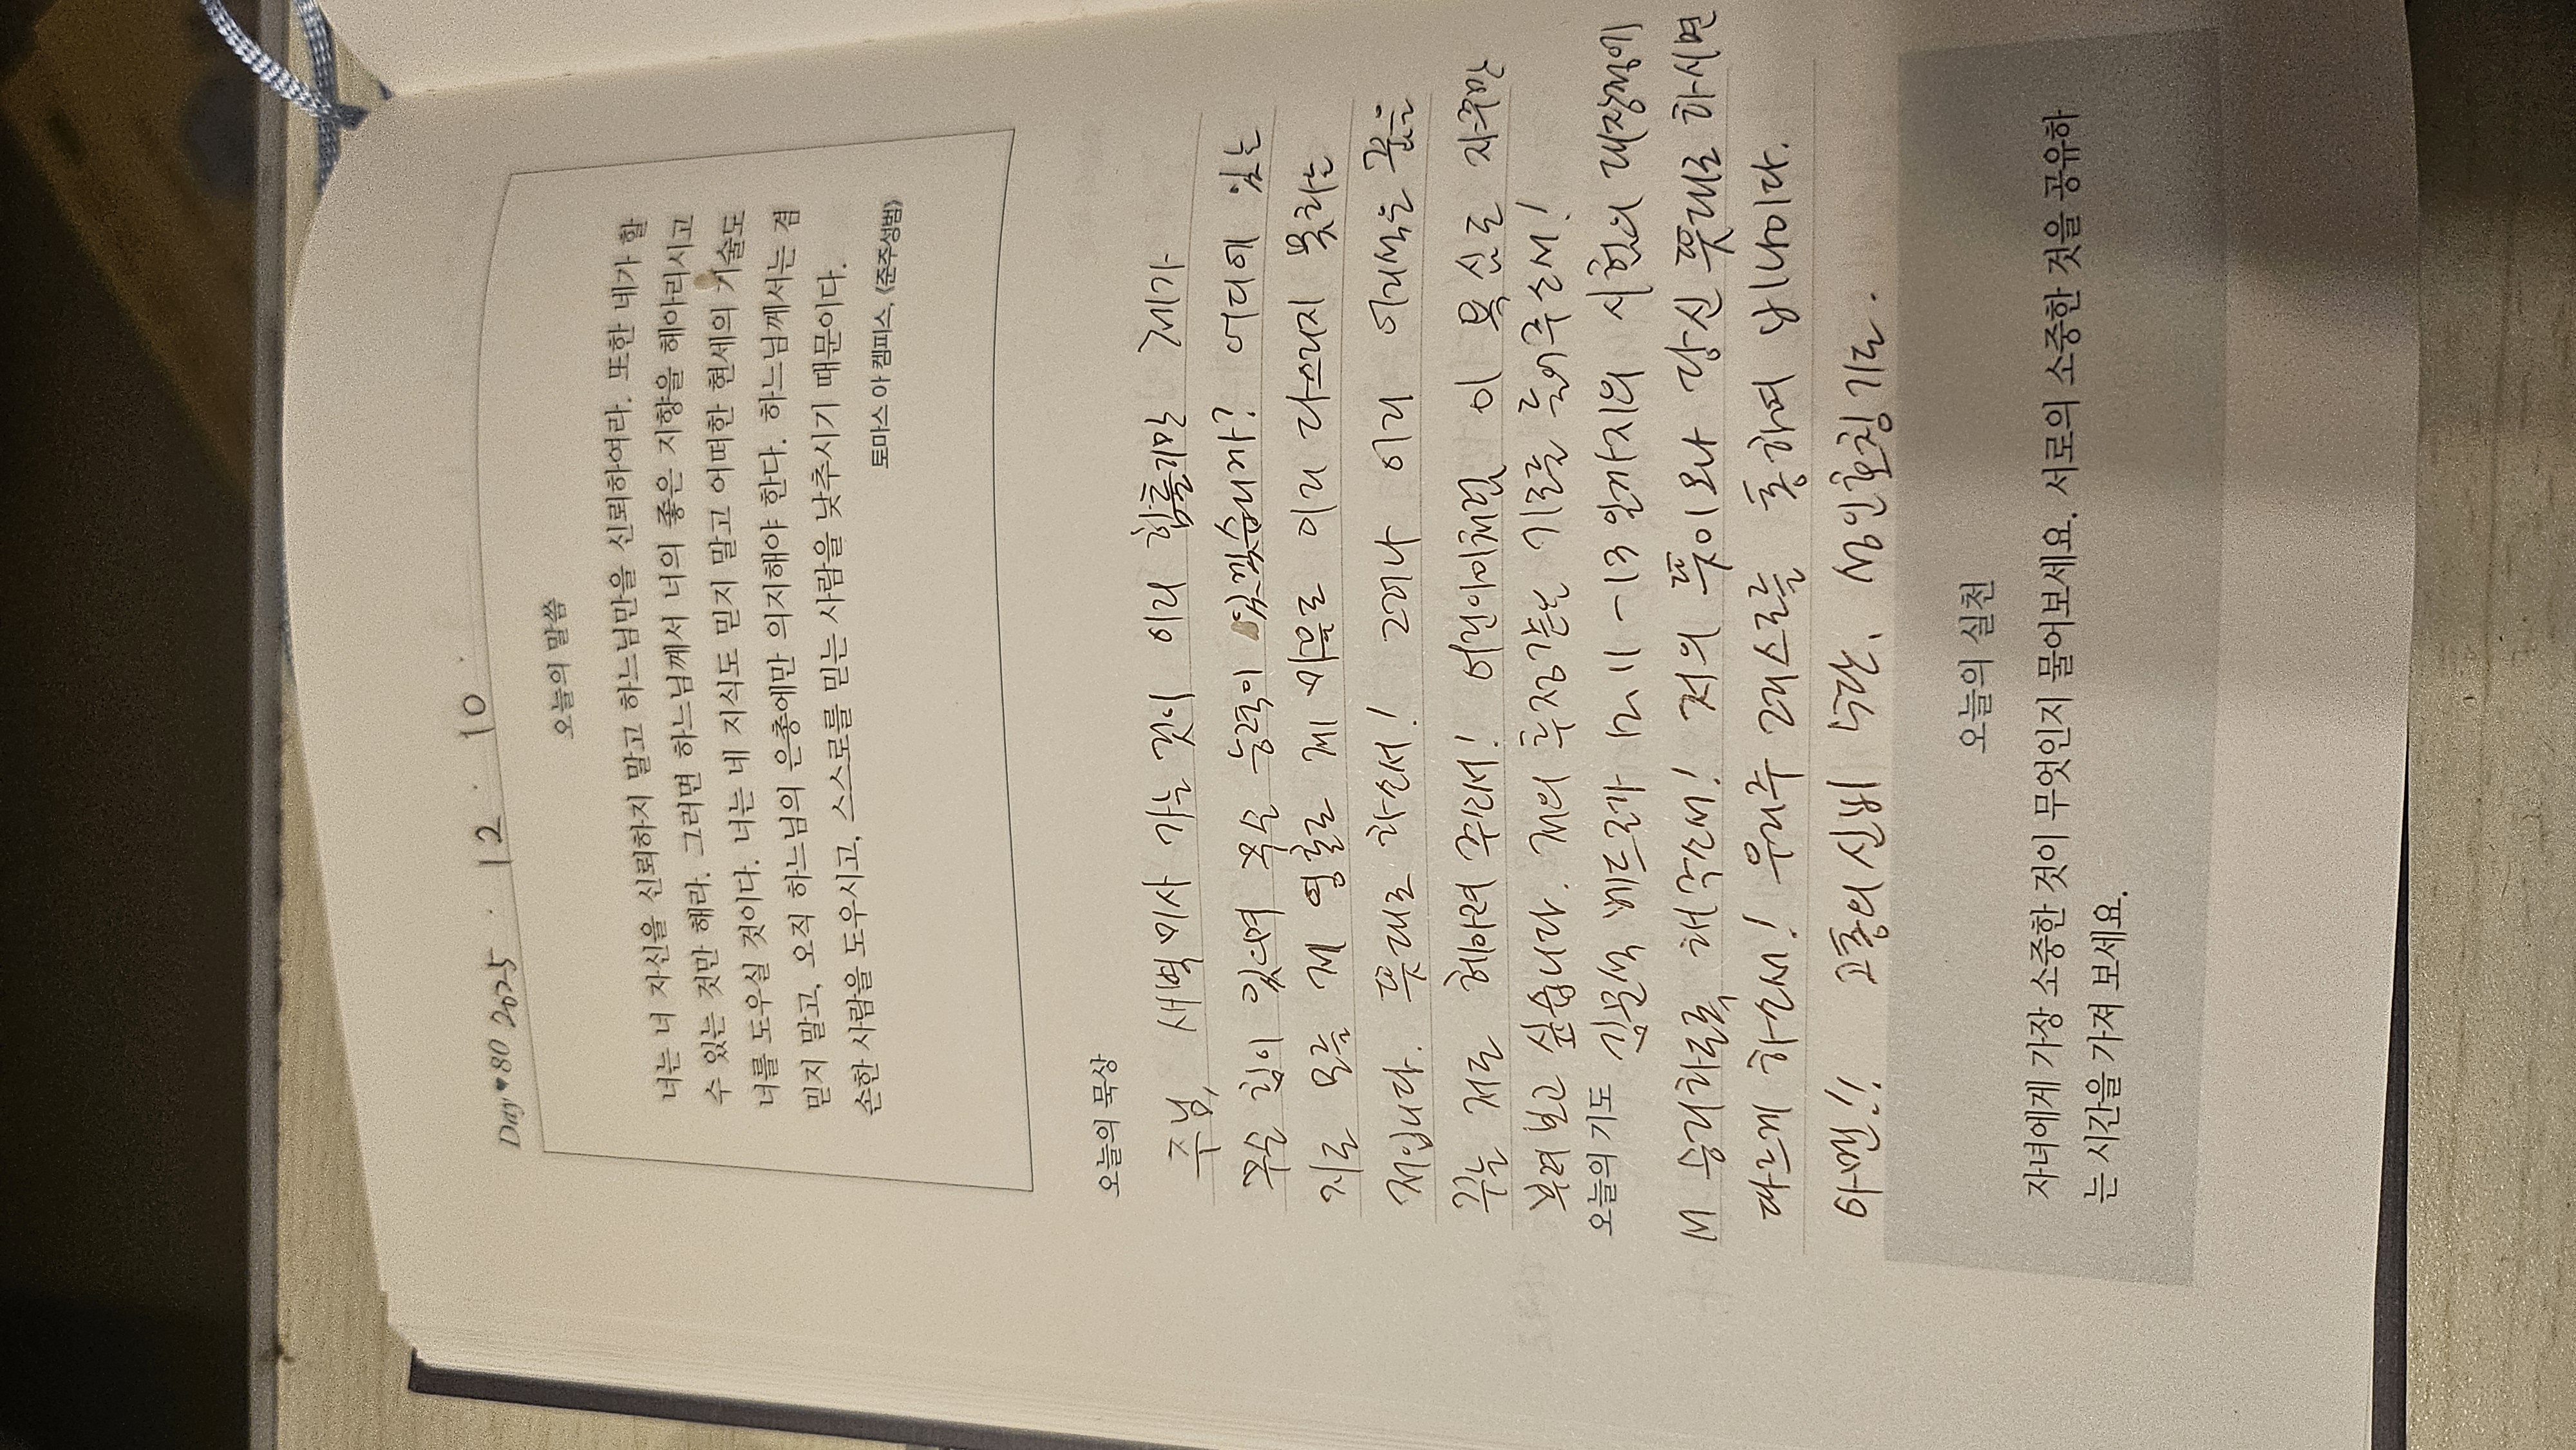 Day♥80 2025. 12. 10.
오늘의 말씀
너는 너 자신을 신뢰하지 말고 하느님만을 신뢰하여라. 또한 네가 할
수 있는 것만 해라. 그러면 하느님께서 너의 좋은 지향을 헤아리시고
너를 도우실 것이다. 너는 네 지식도 믿지 말고 어떠한 현세의 기술도
믿지 말고, 오직 하느님의 은총에만 의지해야 한다. 하느님께서는 겸
손한 사람을 도우시고, 스스로를 믿는 사람을 낮추시기 때문이다.
토마스 아 켐피스, 《준주성범》
오늘의 묵상
주님, 새벽미사 가는 것이 이리 힘들지만 제가
무슨 힘이 있다며 무슨 능력이 있겠습니까? 어디에 있는
지도 모를 제 영혼도 제 마음도 이리 다스리지 못하는
저입니다. 뜻대로 하소서! 2개나 이리 어리석은 꿈을
꾸는 저도 헤아려 주소서! 어린아이처럼 이 욕심도 자꾸만
부려보고 싶습니다. 저의 투정같은 기도를 들어주소서!
오늘의 기도 김문석 베드로가 12.11-13일까지의 시험의 대장정에
서 승리하도록 해주소서! 저의 뜻이오나 당신 뜻대로 하시면
따르게 하소서! 우리주 그리스도를 통하여 비나이다.
아멘!! 고통의 신비 5단, 성인호칭기도.
오늘의 실천
자녀에게 가장 소중한 것이 무엇인지 물어보세요. 서로의 소중한 것을 공유하
는 시간을 가져 보세요.